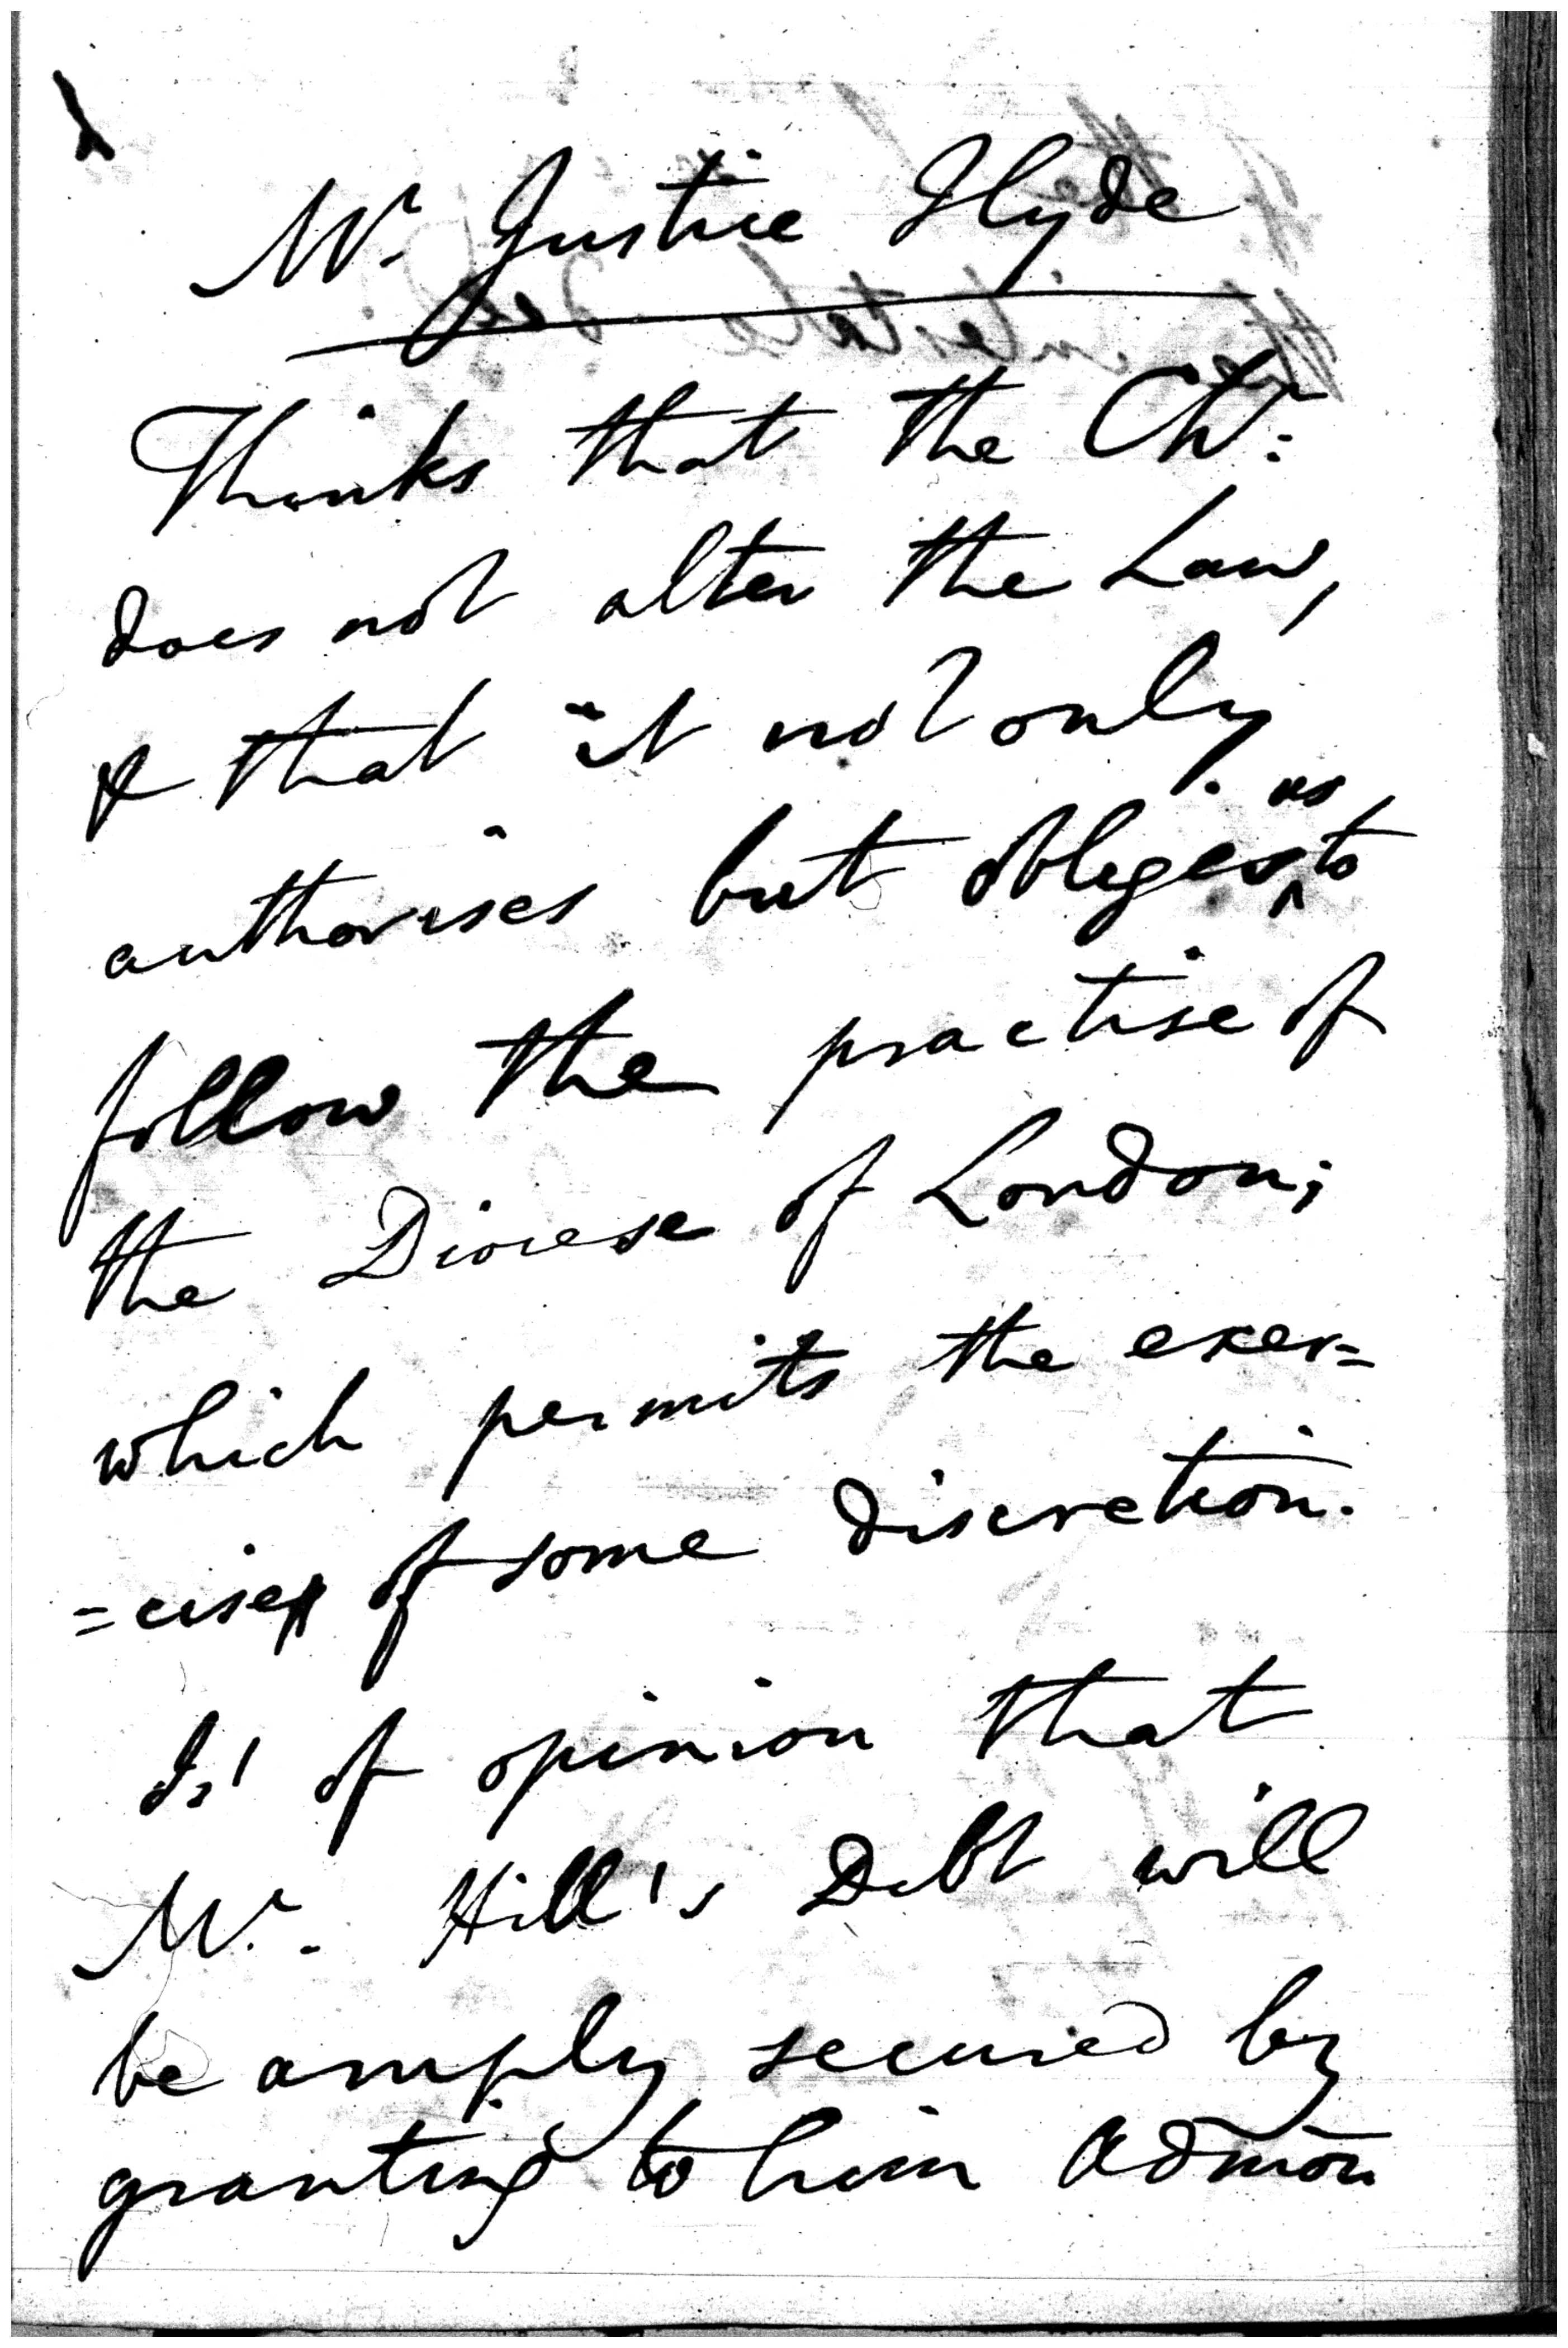 Mr. Justice Hyde
Thinks that the Chr:
does not alter the Law,
& that it not only
authorises but obliges us to
follow the practise of
the Diocese of London;
which permits the exer=
=cise of some discretion.
Is of opinion that
Mr. Hill's Debt will
be amply secured by
granting to him Admon